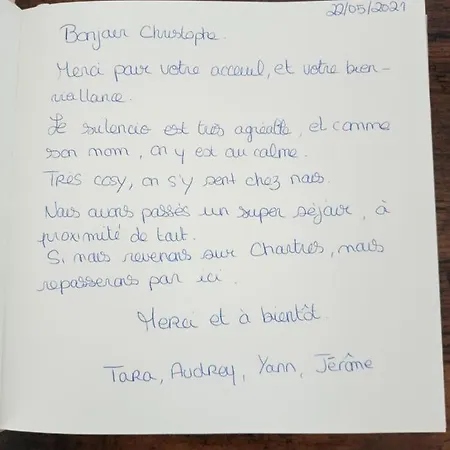 22/05/2021
Bonjour Christophe.
Merci pour votre acceuil, et votre bien-
vaillance.
Le silencio est très agréable, et comme
son nom, on y est au calme.
Très cosy, on s'y sent chez nous.
Nous avons passés un super séjour, à
proximité de tout.
Si nous revenons sur Chartres, nous
repasserons par ici.
Merci et à bientôt
Tara, Audrey, Yann, Jérôme